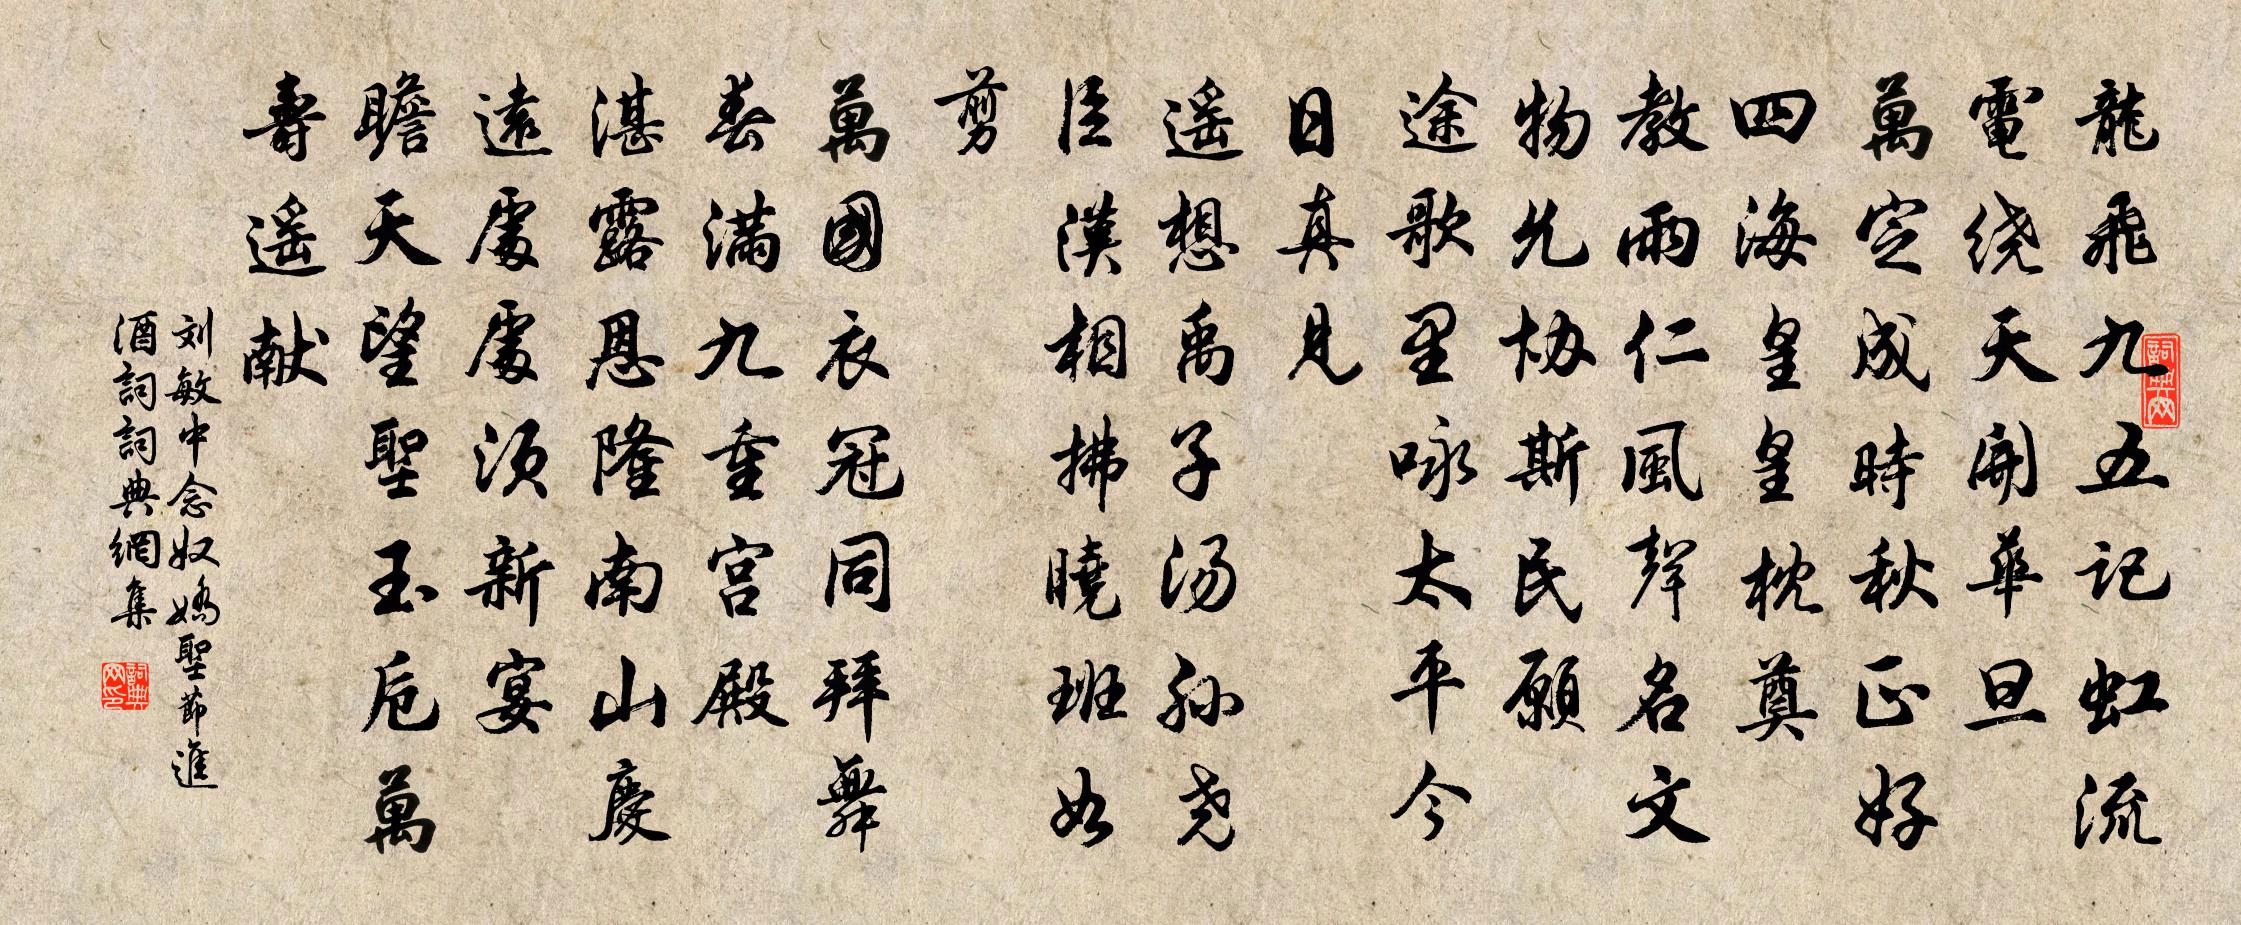 龍飛九五记虹流
電绕天開華旦
萬定成時秋正好
四海皇皇枕奠
教雨仁風聲名文
物允协斯民願
途歌里咏太平今
日真見
遥想禹子汤孙尧
臣漢相拂曉班如
剪
萬國衣冠同拜舞
春满九重宫殿
湛露恩隆南山慶
遠處處须新宴
瞻天望聖玉卮萬
壽遥献
刘敏中念奴嬌聖節進
酒詞詞典網集
詞典網
詞典網印